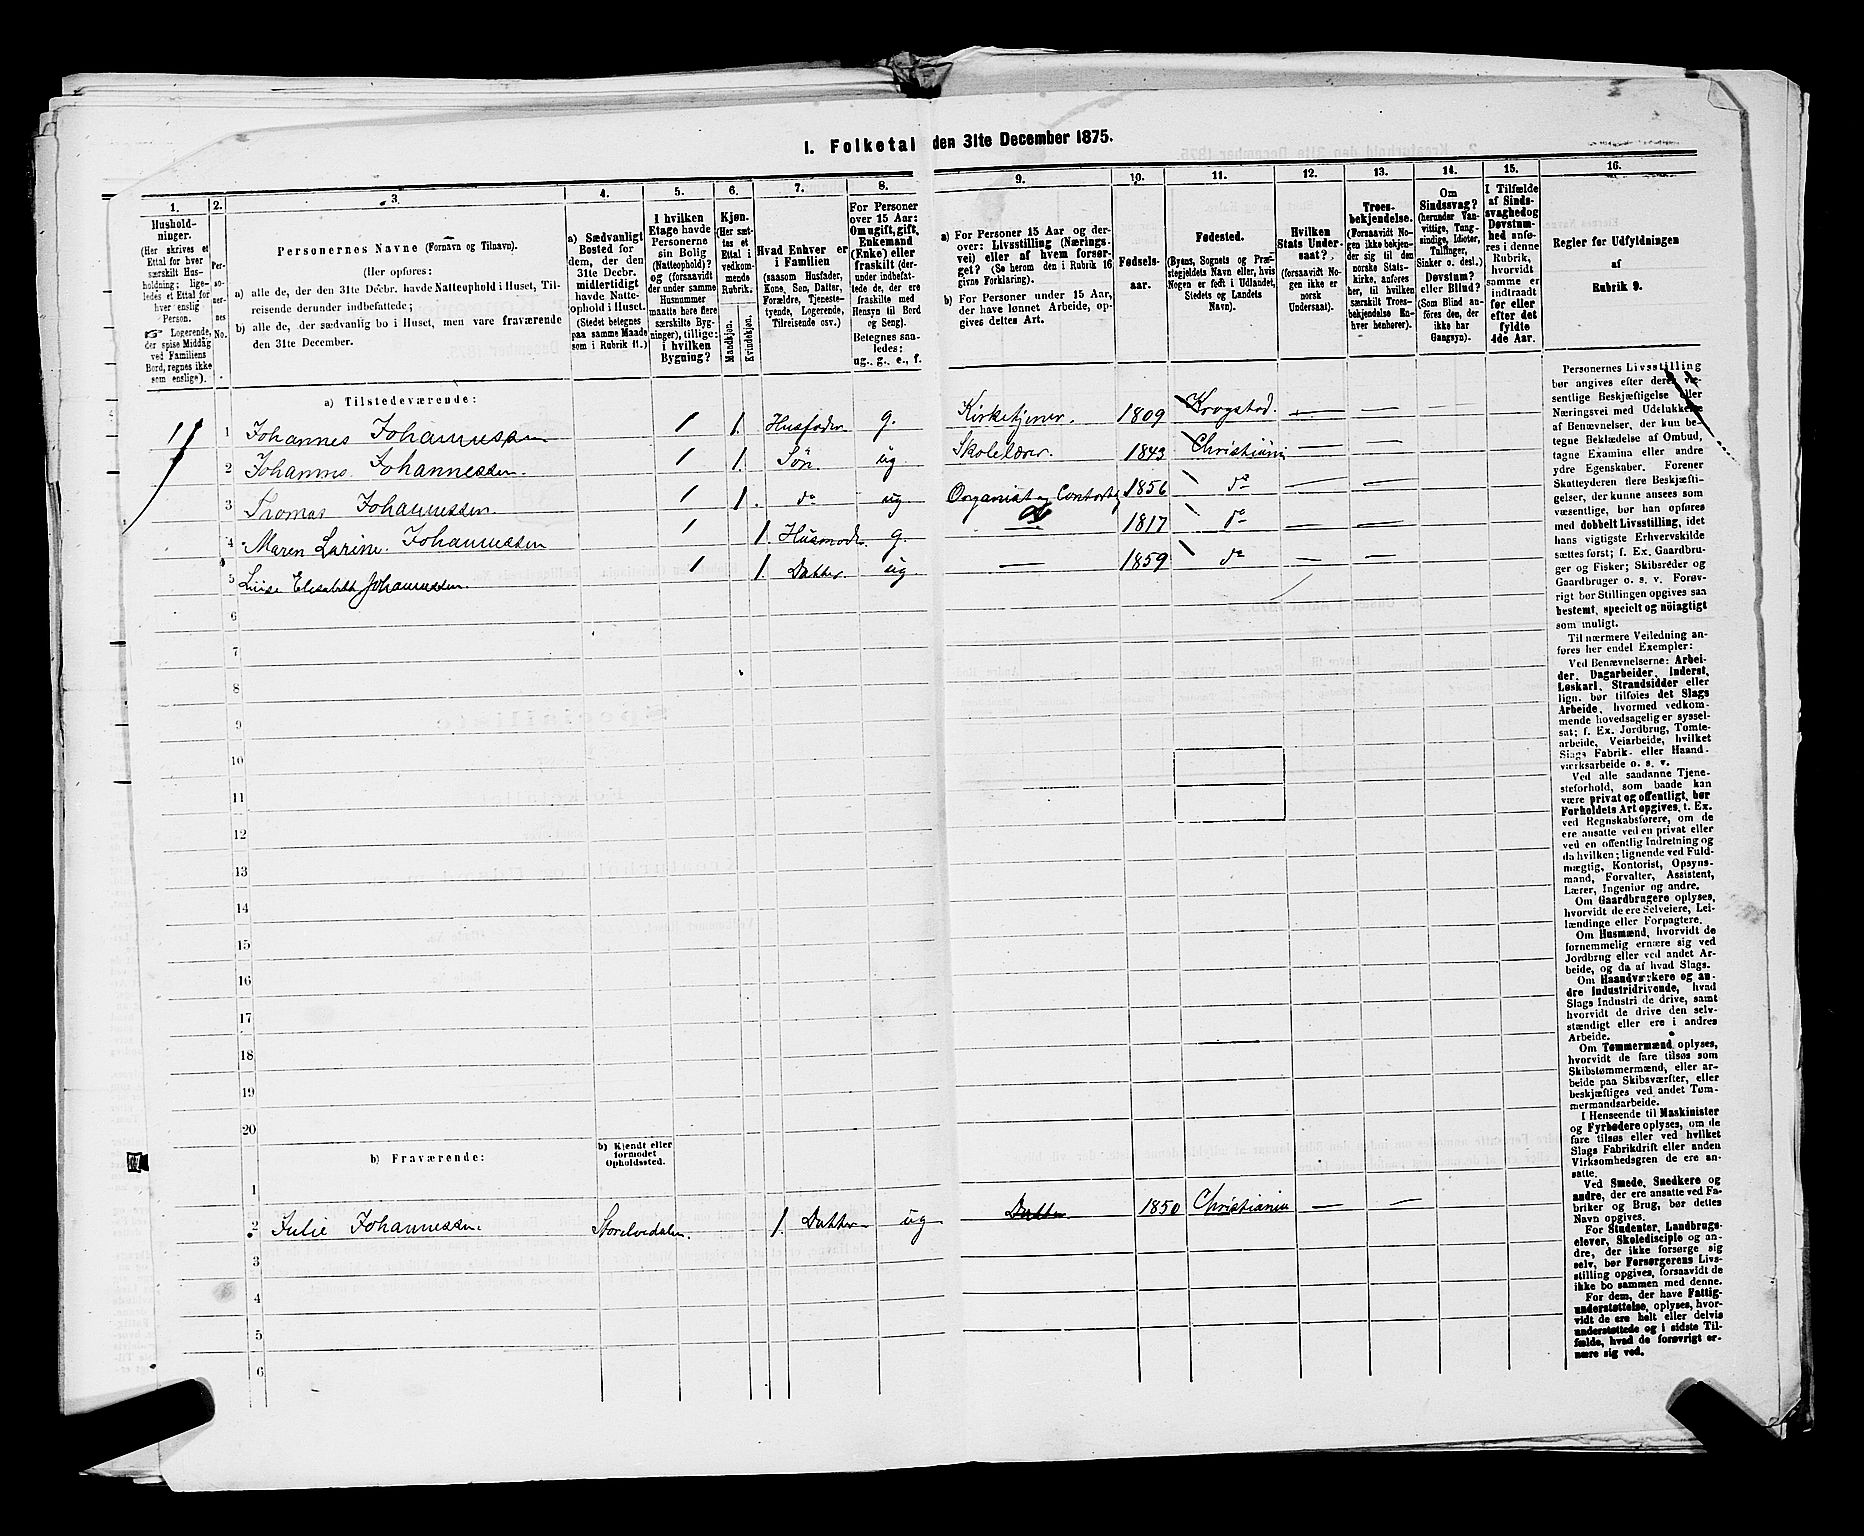 I. Folketal den 31te December 1875.
1. 2. 3. 4. 5. 6. 7. 8. 9. 10. 11. 12. 13. 14. 15. 16.
Hushold-
ninger.
(Her skrives et
Ettal for hver
særskilt Hus-
holdning; lige-
ledes et Ettal for
hver enslig
Person.
☞ Logerende,
der spise Middag
ved Familiens
Bord, regnes ikke
som enslige).
Per-
so-
ner-
nes
No.
Personernes Navne (Fornavn og Tilnavn).
(Her opføres:
a) alle de, der den 31te Decbr. havde Natteophold i Huset, Til-
reisende derunder indbefattede;
b) alle de, der sædvanlig bo i Huset, men vare fraværende
den 31te December.
a) Sædvanligt
Bosted for
dem, der den
31te Decbr.
midlertidigt
havde Natte-
ophold i Huset.
(Stedet betegnes
paa samme Maade
som i Rubrik 11.)
I hvilken
Etage havde
Personerne
sin Bolig
(Natteophold)?
og (forsaavidt
der under samme
Husnummer
maatte høre flere
særskilte Byg-
ninger), tillige:
i hvilken
Bygning?
Kjøn.
(Her sæt-
tes et
Ettal i
vedkom-
mende
Rubrik.
Mandkjøn.
Kvindekjøn.
Hvad Enhver er
i Familien
(saasom Husfader,
Kone, Søn, Datter,
Forældre, Tjeneste-
tyende, Logerende,
Tilreisende osv.)
For Personer
over 15 Aar:
Om ugift, gift,
Enkemand
(Enke) eller
fraskilt (der-
under indbefat-
tede de, der ere
fraskilte med
Hensyn til Bord
og Seng).
Betegnes saa-
ledes:
ug., g., e., f.
a) For Personer 15 Aar og der-
over: Livsstilling (Nærings-
vei) eller af hvem forsør-
get? (Se herom den i Rubrik 16
givne Forklaring).
b) For Personer under 15 Aar,
der have lønnet Arbeide, op-
gives dettes Art.
Fødsels-
aar.
Fødested.
(Byens, Sognets og Præ-
stegjeldets Navn eller, hvis
Nogen er født i Udlandet,
Stedets og Landets
Navn).
Hvilken
Stats Under-
saat?
(forsaavidt No-
gen ikke er
norsk
Undersaat).
Troes-
bekjendelse.
(Forsaavidt No-
gen ikke bekjen-
der sig til den
norske Stats-
kirke, anføres
her, til hvilken
særskilt Troes-
bekjendelse En-
hver henhører).
Om
Sindssvag?
(herunder Van-
vittige, Tung-
sindige, Idioter,
Tullinger,
Sinker o. desl.)
Døvstum?
eller Blind?
(Som Blind an-
føres den, der
ikke har
Gangsyn).
I Tilfælde
af Sinds-
svaghed og
Døvstum-
hed anfø-
res i denne
Rubrik,
hvorvidt
samme er
indtraadt
før eller
efter det
fyldte
4de Aar.
Regler for Udfyldningen
af
Rubrik 9.
a) Tilstedeværende:
1 1 Johannes Johannessen 1 1. Husfader g. Kirketjener. 1809 Krogstad. — —
2 Johannes Johannessen. 1 1. Søn ug Skolelærer. 1843 Christiania — —
3 Thomas Johannessen. 1 1. do ug Organist og 1856 do — —
4 Maren Larine Johannessen 1 1. Husmoder g. — 1817 do — —
5 Elisabeth Johannessen 1 1. Datter. ug — 1859 do — —
6
7
8
9
10
11
12
13
14
15
16
17
18
19
20
b) Fraværende:
b) Kjendt eller
formodet
Opholdssted.
1
2 Julie Johannessen. Storelvedalen. 1. Datter ug Datter 1850 Christiania — —
3
4
5
6
Personernes Livsstilling
bør angives efter deres væ-
sentlige Beskjæftigelse eller
Næringsvei med Udelukkelse
af Benævnelser, der kun be-
tegne Beklædelse af Ombud,
tagne Examina eller andre
ydre Egenskaber. Forener
Skatteyderen flere Beskjæfti-
gelser, der kunne ansees som
væsentlige, bør han opføres
med dobbelt Livsstilling, idet
hans vigtigste Erhvervskilde
sættes først; f. Ex. Gaardbru-
ger og Fisker; Skibsreder og
Gaardbruger o. s. v. Forøv-
rigt bør Stillingen opgives saa
bestemt, specielt og nöiagtigt
som muligt.
Til nærmere Veiledning an-
føres her endel Exempler:
Ved Benævnelserne: Arbei-
der, Dagarbeider, Inderst,
Løskarl, Strandsidder eller
lign. bør tilføies det Slags
Arbeide, hvormed vedkom-
mende hovedsagelig er syssel-
sat; f. Ex. Jordbrug, Tømte-
arbeide, Veiarbeide, hvilket
Slags Fabrik- eller Haand-
værksarbeide o. s. v.
Ved alle saadanne Tjene-
steforhold, som baade kan
være privat og offentligt, bør
Forholdets Art opgives, t. Ex.
ved Regnskabsførere, om de
ere ansatte ved en privat eller
ved en offentlig Indretning og
da hvilken; lignende ved Fuld-
mægtig, Kontorist, Opsyns-
mand, Forvalter, Assistent,
Lærer, Ingeniør og andre.
Om Gaardbrugere oplyses,
hvorvidt de ere Selveiere, Lei-
lændinge eller Forpagtere.
Om Husmænd, hvorvidt de
fornemmelig ernære sig ved
Jordbrug eller ved andet Ar-
beide, og da af hvad Slags.
Om Haandværkere og an-
dre Industridrivende, hvad
Slags Industri de drive, samt
hvorvidt de drive den selv-
stændigt eller ere i andres
Arbeide.
Om Tømmermænd oplyses,
hvorvidt de fare tilsøs som
Skibstømmermænd, eller ar-
beide paa Skibsværfter, eller
beskjæftiges ved andet Tøm-
mermandsarbeide.
I Henseende til Maskinister
og Fyrbødere oplyses, om de
fare tilsøs eller ved hvilket
Slags Fabrikdrift eller anden
Virksomhedsgren de ere an-
satte.
Ved Smede, Snedkere og
andre, der ere ansatte ved Fa-
briker og Brug, bør dettes
Navn opgives.
For Studenter, Landbrugs-
elever, Skoledisciple og an-
dre, der ikke forsørge sig
selv, bør Forsørgerens Livs-
stilling opgives, forsaavidt de
ikke bo sammen med denne.
For dem, der have Fattig-
understøttelse, oplyses, hvor-
vidt de ere helt eller delvis
understøttede og i sidste Til-
fælde, hvad de forøvrigt er-
nære sig ved.